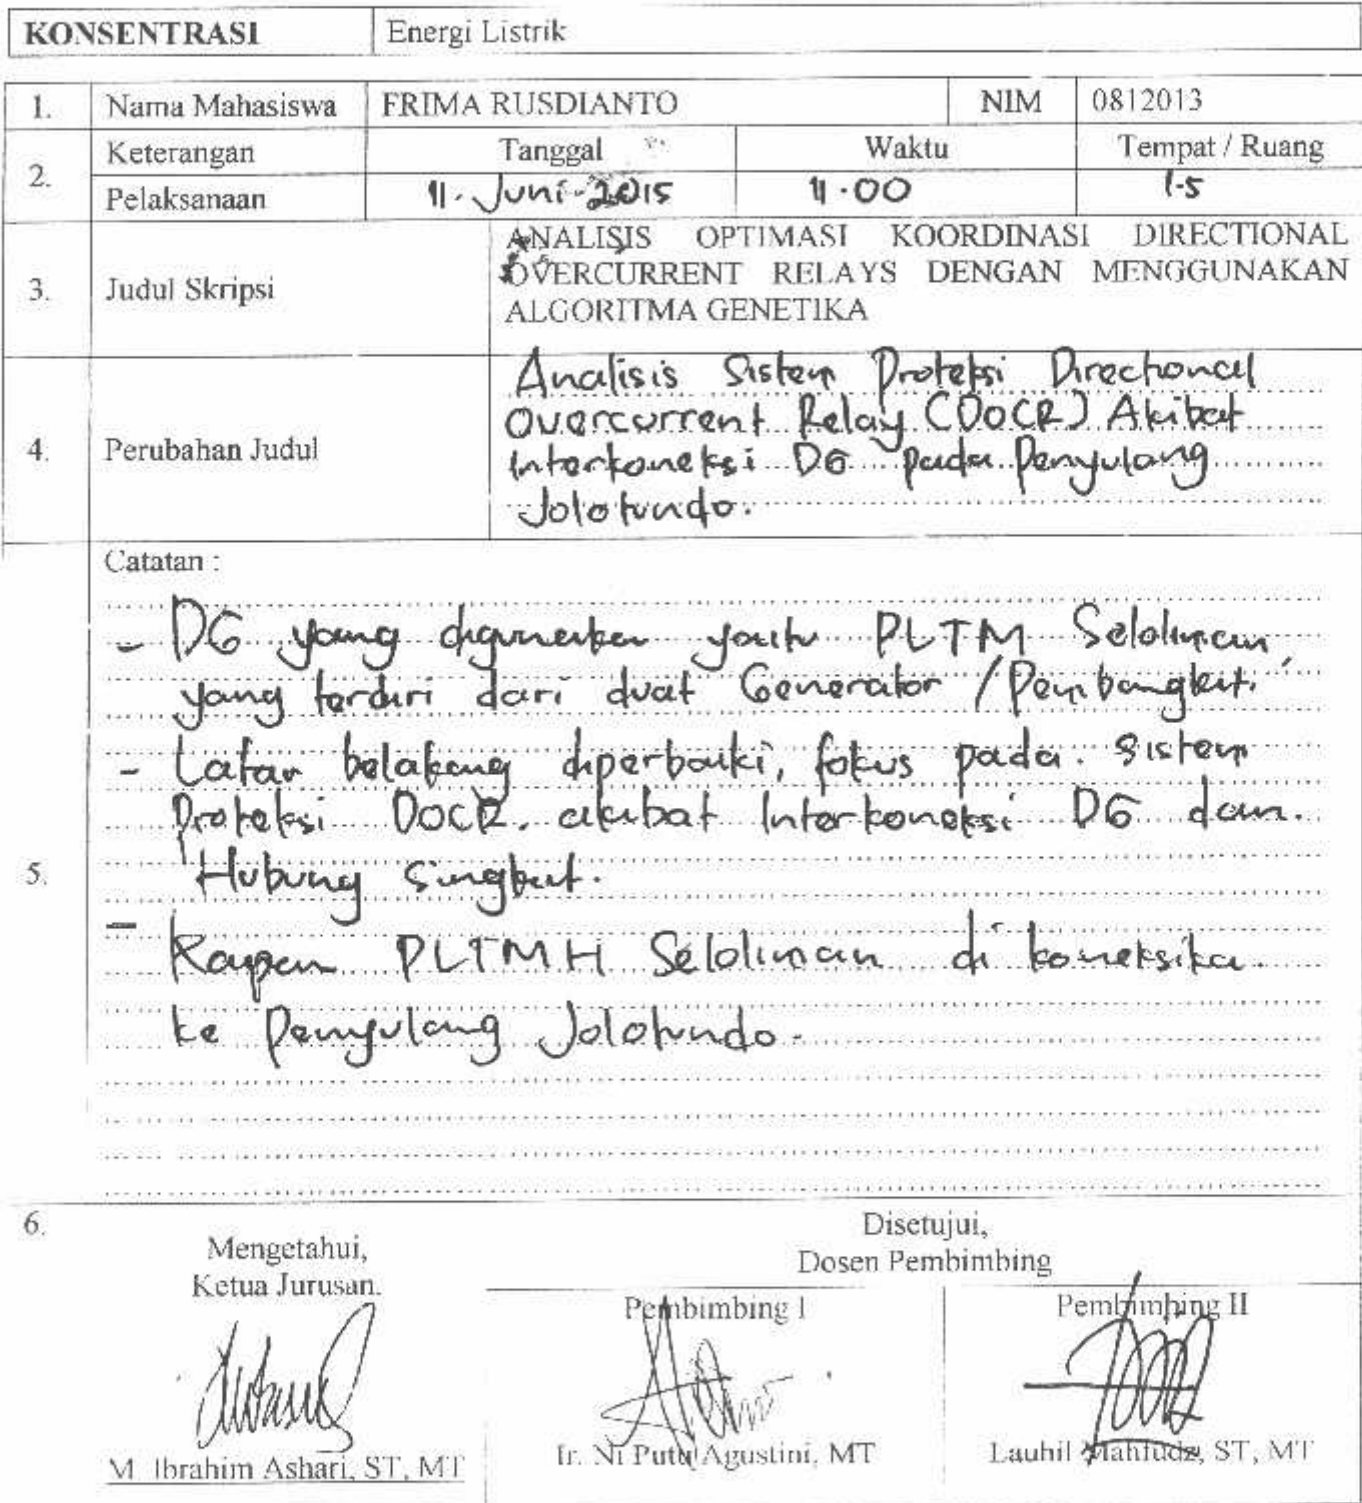 KONSENTRASI Energi Listrik
1. Nama Mahasiswa FRIMA RUSDIANTO NIM 0812013
2. Keterangan Tanggal Waktu Tempat / Ruang
Pelaksanaan 11. Juni-2015 11.00 1-5
3. Judul Skripsi
ANALISIS OPTIMASI KOORDINASI DIRECTIONAL
OVERCURRENT RELAYS DENGAN MENGGUNAKAN
ALGORITMA GENETIKA
4. Perubahan Judul
Analisis Sistem Proteksi Directional
Overcurrent Relay (DOCR) Akibat
Interkoneksi DG pada Penyulang
Jolotundo.
5. Catatan :
- DG yang digunakan yaitu PLTM Seloliman,
yang terdiri dari duat Generator / Pembangkit.
- Latar belakang diperbaiki, fokus pada. Sistem
Proteksi DOCR. akibat Interkoneksi DG dan.
Hubung Singkat.
- Kapan PLTMH Seloliman di koneksika.
ke Penyulang Jolotundo.
6. Mengetahui,
Ketua Jurusan.
M. Ibrahim Ashari, ST, MT
Disetujui,
Dosen Pembimbing
Pembimbing I
Ir. Ni Putu Agustini, MT
Pembimbing II
Lauhil Mahfudz, ST, MT